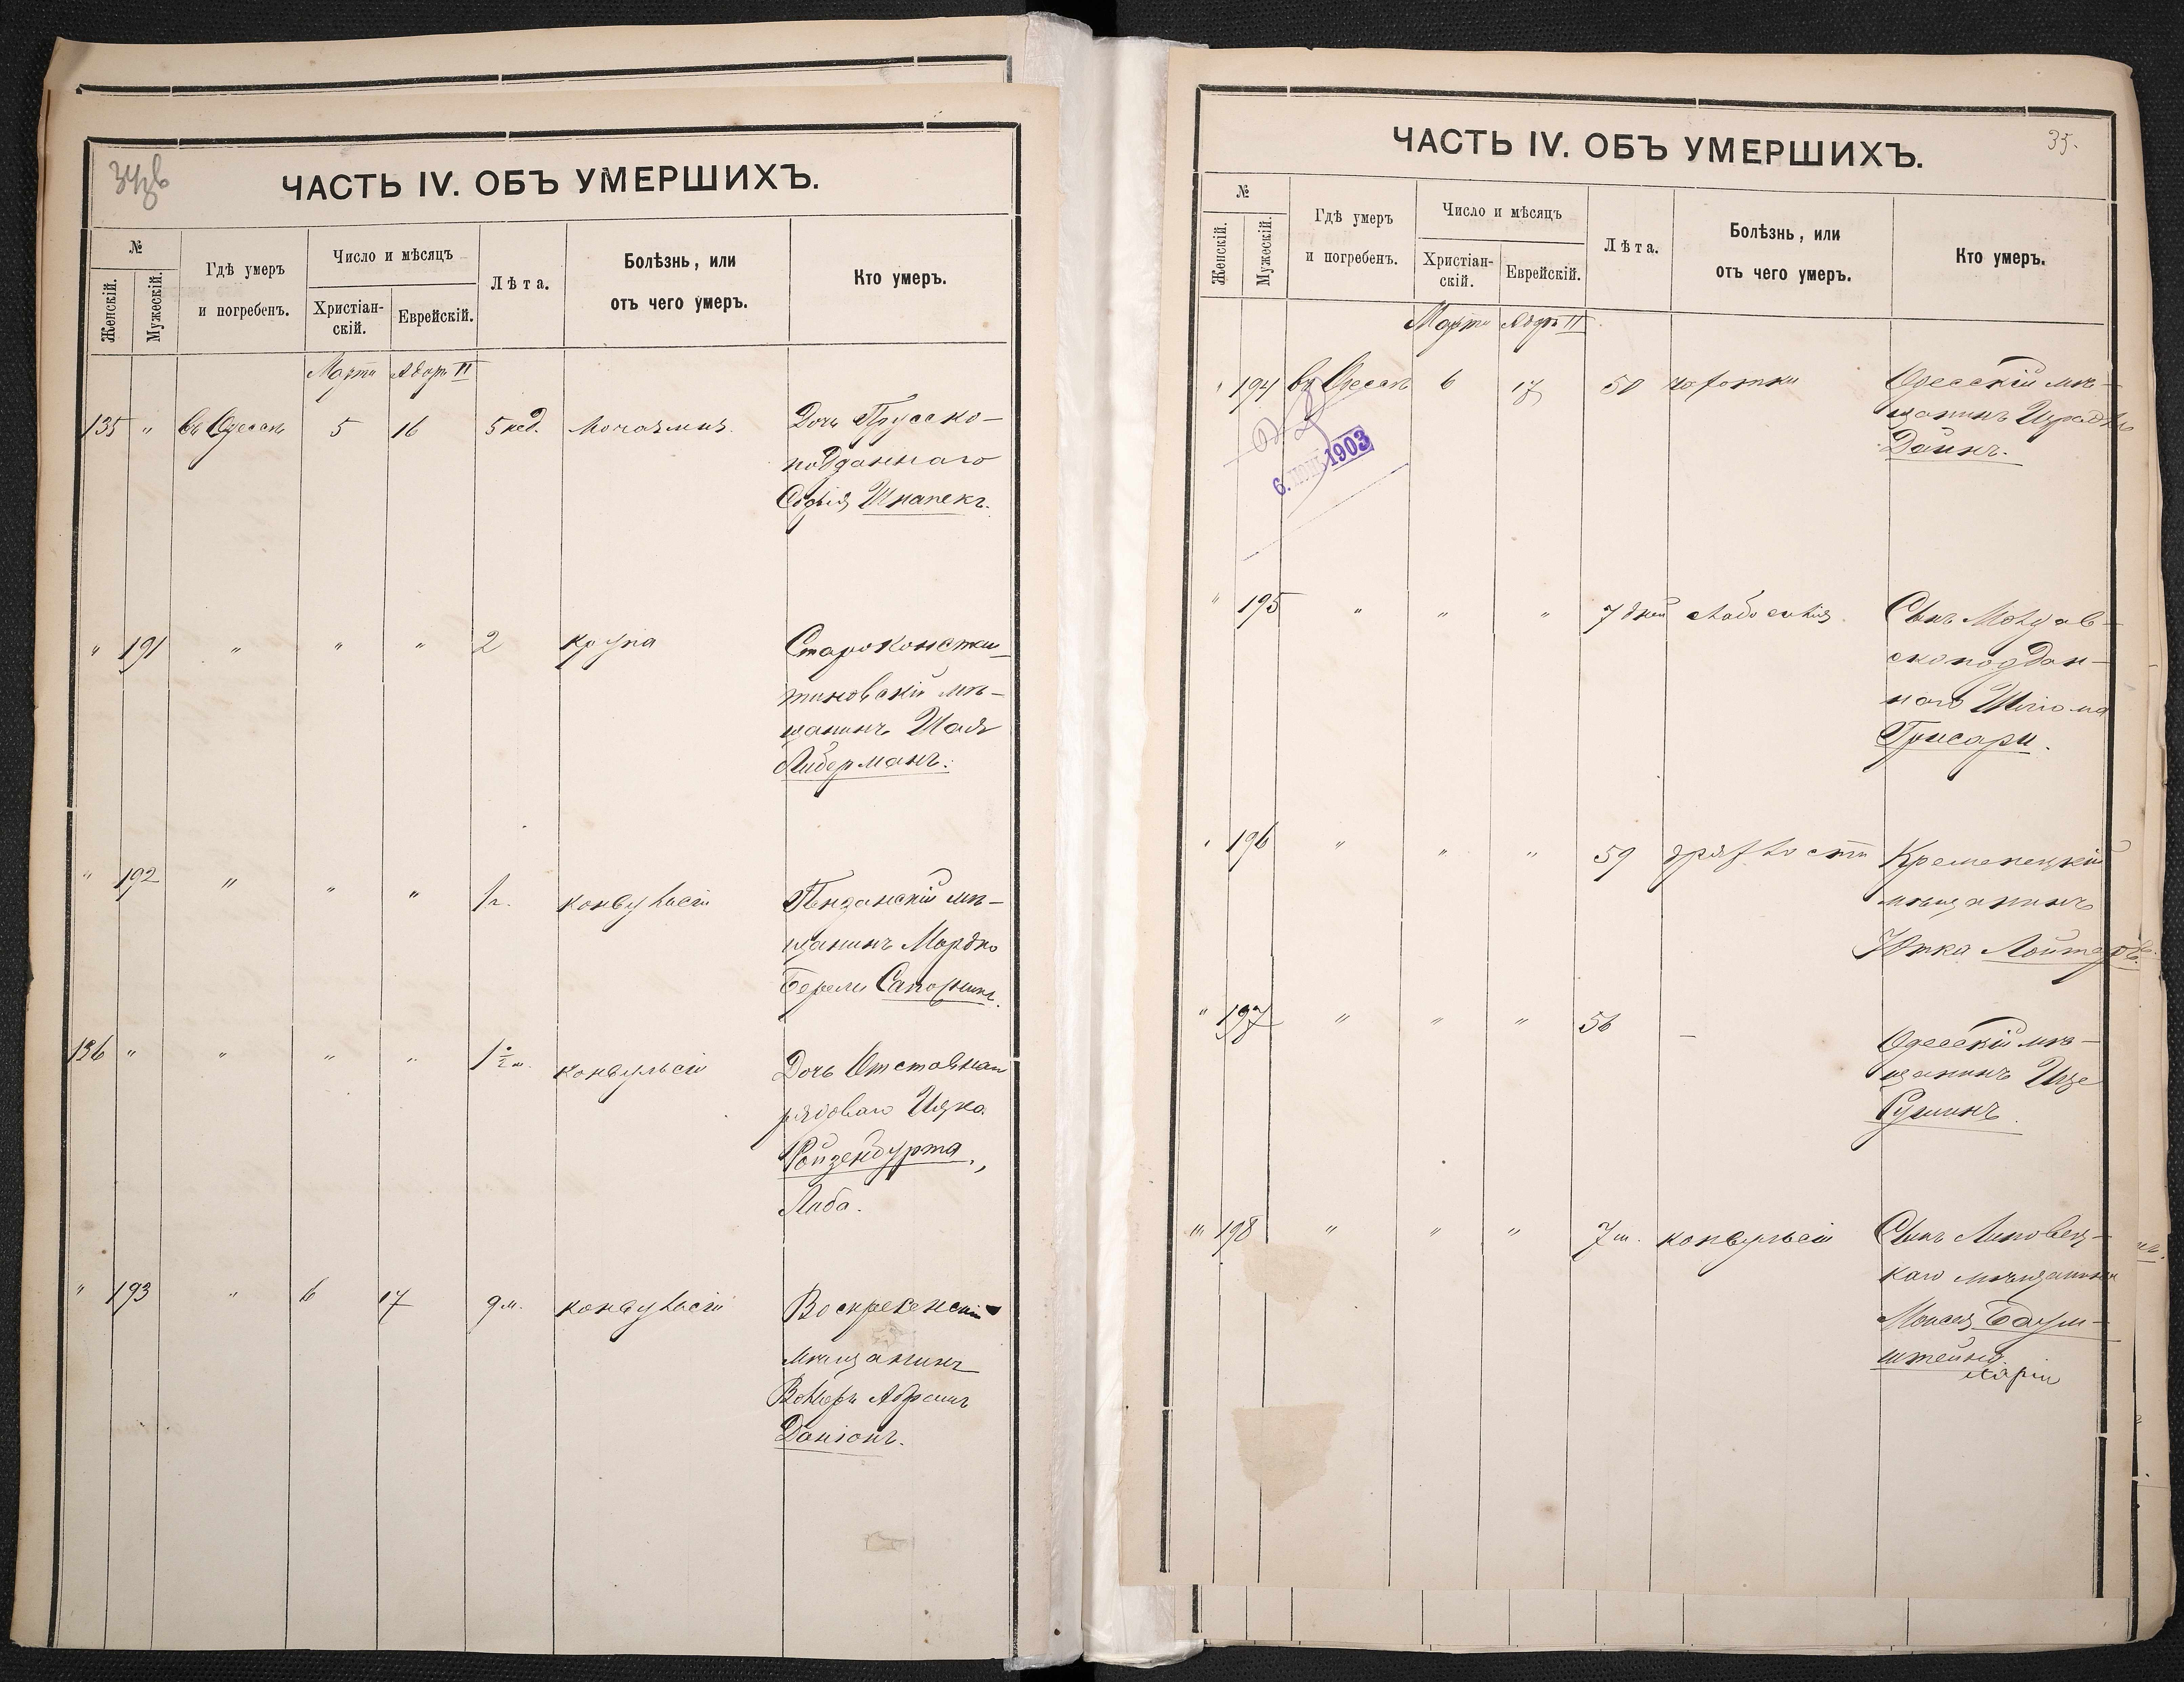 ЧАСТЬ IV. ОБЪ УМЕРШИХЪ.
№
Женскій.
Мужескій.
Гдѣ умеръ
и погребенъ.
Число и мѣсяцъ
Христіан-
скій.
Еврейскій.
Лѣта.
Болѣзнь, или
отъ чего умеръ.
Кто умеръ.
Марта Адаръ II
135 " въ Одессѣ 5 16 5 нед. Дочь Прусско-
подданнаго
Софія Шнапекъ.
" 191 " " " 2 крупа Староконстан-
тиновскій мѣ-
щанинъ Шая
Либерманъ.
" 192 " " " 1 г. конвульсіи мѣ-
щанинъ Мордко
Берель
136 " " " " 1½ конвульсіи Дочь Отставнаго
рядоваго Ицка
Ройзенбурта,
Либа.
" 193 " 6 17 9 м. конвульсіи Воскресенскій
мѣщанинъ
Абрамъ
Даніонъ.
35.
ЧАСТЬ IV. ОБЪ УМЕРШИХЪ.
№
Женскій.
Мужескій.
Гдѣ умеръ
и погребенъ.
Число и мѣсяцъ
Христіан-
скій.
Еврейскій.
Лѣта.
Болѣзнь, или
отъ чего умеръ.
Кто умеръ.
Марта Адаръ II
" 194 въ Одессѣ 6 17 50 чахотки Одесскій мѣ-
щанинъ
Дайнъ.
6. 1903
" 195 " " " 7 дней слабосилія Сынъ Молдав-
скоподдан-
наго Шлиома
Грисари.
" 196 " " " 59 дряхлости Кременецкій
мѣщанинъ
" 197 " " " 56 – Одесскій мѣ-
щанинъ Ицe
" 198 " " " 7 м. конвульсіи Сынъ Липовец-
каго мѣщанина
Моисея Баум-
штейна